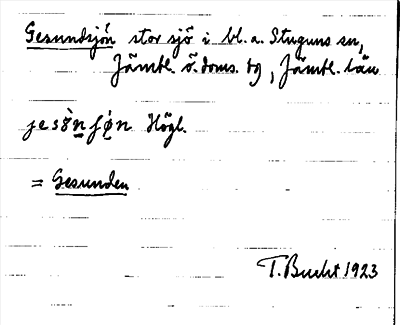 Gesundsjön stor sjö i bl.a. Stuguns sn,
Jämtl. ö. doms. tg, Jämtl. län
Högl.
= Gesunden
T. Bucht 1923